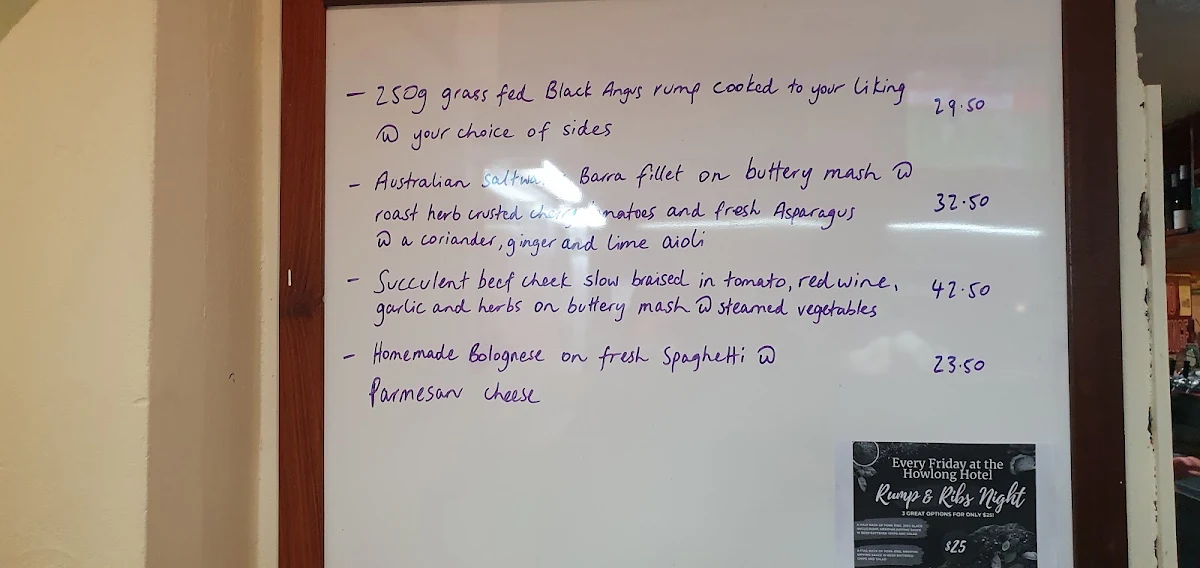 - 250g grass fed Black Angus rump cooked to your liking 29.50
@ your choice of sides
- Australian Barra fillet on buttery mash @
roast herb crusted cherry tomatoes and fresh Asparagus 32.50
@ a coriander, ginger and lime aioli
- Succulent beef cheek slow braised in tomato, red wine, 42.50
garlic and herbs on buttery mash @ steamed vegetables
- Homemade Bolognese on fresh Spaghetti @ 23.50
Parmesan cheese
Every Friday at the
Howlong Hotel
Rump & Ribs Night
3 GREAT OPTIONS FOR ONLY $25!
$25